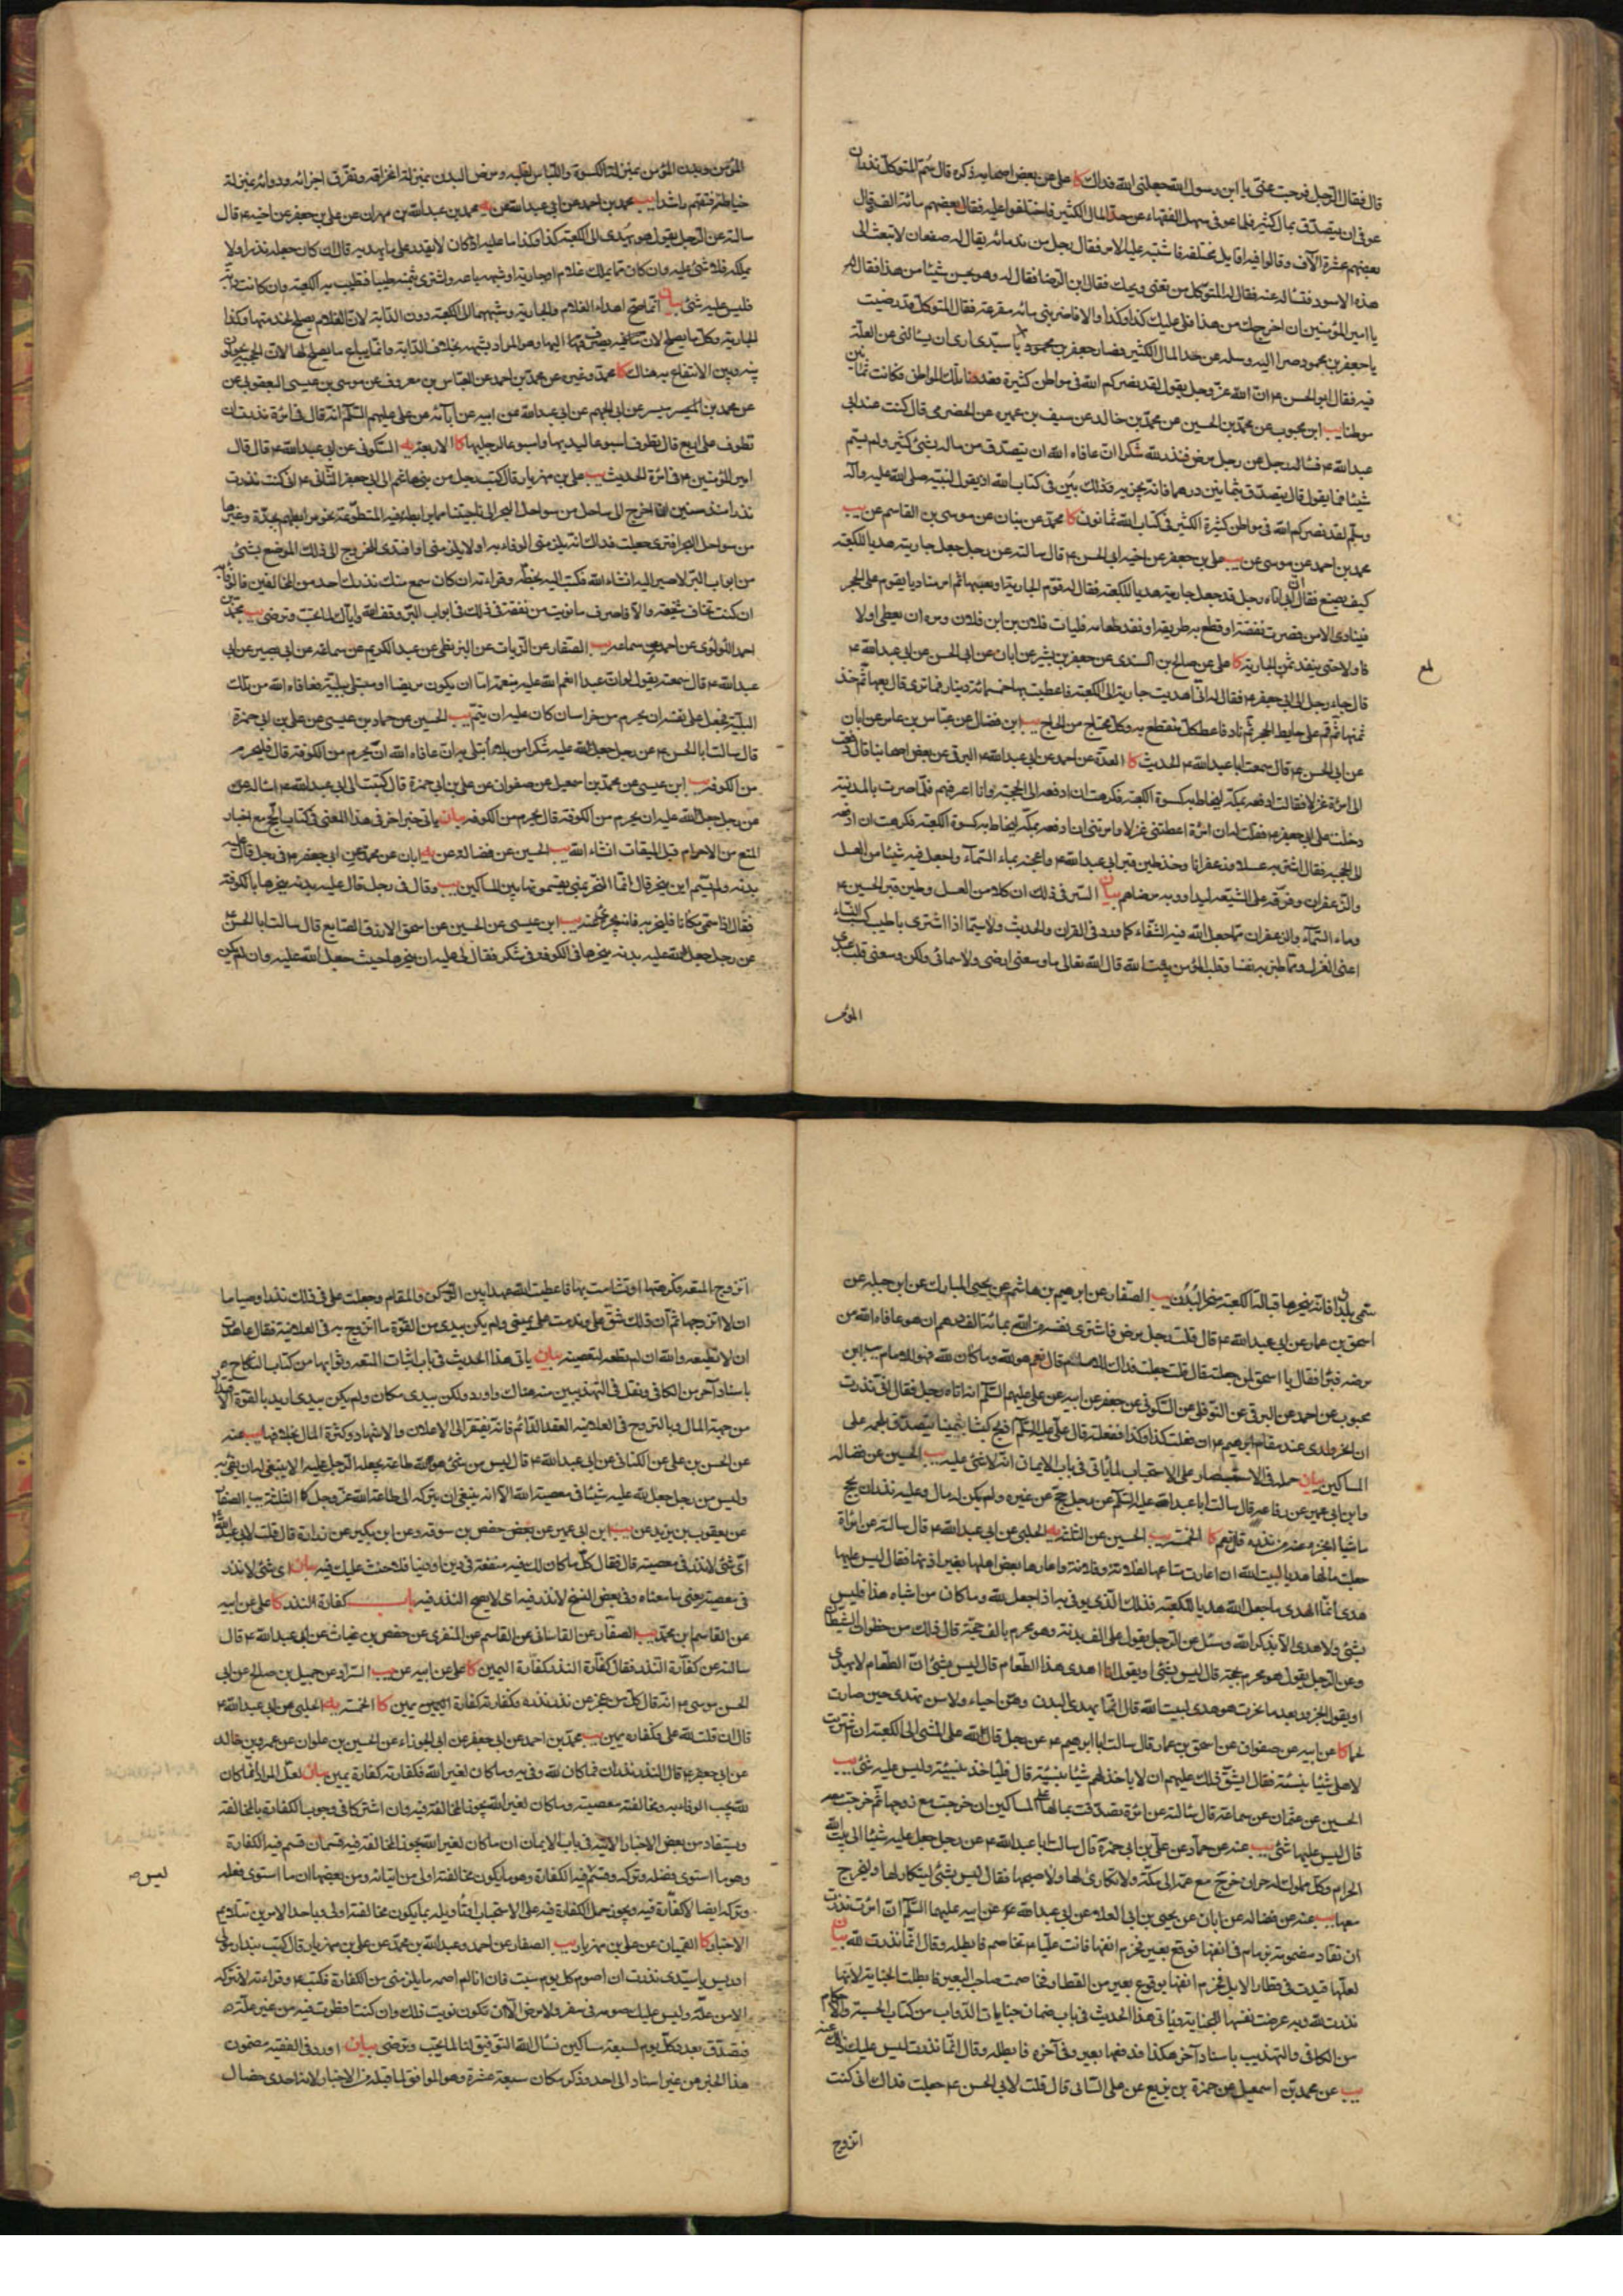 قال فقال الرجل فرجت عنى يا ابن رسول الله جعلنى الله فداك كا على عن بعض اصحابه ذكره قال سم المتوكل فنذر ان
عوفى ان يتصدق بمال كثير فلما عوفى سال الفقهاء عن حد المال الكثير فاختلفوا عليه فقال بعضهم مائة الف وقال
بعضهم عشرة آلاف وقالوا فيه اقاويل مختلفة فاشتبه عليه الامر فقال رجل من ندمائه يقال له صفعان الا تبعث الى
هذه الاسود فتساله عنه فقال له المتوكل من تعنى ويحك فقال ابن الرضا فقال له وهو يحسن شيئا من هذا فقال
يا امير المؤمنين ان اخرجك من هذا فلى عليك كذا وكذا والا فاضربنى مائة مقرعة فقال المتوكل قد رضيت
يا جعفر بن محمود صر اليه وسله عن حد المال الكثير فصار جعفر بن محمود يا سيدى ارى ان يسالنى عن العلة
فيه فقال ابو الحسن ع ان الله عز وجل يقول لقد نصركم الله فى مواطن كثيرة فعددنا تلك المواطن فكانت ثمانين
موطنا يب ابن محبوب عن محمد بن الحسين عن محمد بن خالد عن سيف بن عميرة عن الحضرمى قال كنت عند ابى
عبد الله ع فساله رجل عن رجل مرض فنذر لله شكرا ان عافاه الله ان يتصدق من ماله بشئ كثير ولم يسم
شيئا فما يقول قال يتصدق بثمانين درهما فانه يجزيه وذلك بين فى كتاب الله اذ يقول لنبيه صلى الله عليه وآله
وسلم لقد نصركم الله فى مواطن كثيرة والكثير فى كتاب الله ثمانون كا محمد عن بنان عن موسى بن القاسم عن يب
محمد بن احمد عن موسى عن يب على بن جعفر عن اخيه ابى الحسن ع قال سالته عن رجل جعل جاريته هديا للكعبة
كيف يصنع فقال ان ابى اتاه رجل قد جعل جاريته هديا للكعبة فقال له قوم الجارية او بعها ثم امر مناديا يقوم على الحجر
فينادى الا من قصرت نفقته او قطع به طريقه او نفد طعامه فليات فلان بن فلان ومره ان يعطى اولا
فاولا حتى ينفد ثمن الجارية كا على عن صالح بن السندى عن جعفر بن بشير عن ابان عن ابى الحسن عن ابى عبد الله ع
قال جاء رجل الى ابى جعفر ع فقال له انى اهديت جارية الى الكعبة فاعطيت بها خمسمائة دينار فما ترى قال بعها ثم خذ
ثمنها ثم قم على حايط الحجر ثم ناد فاعط كل منقطع به وكل محتاج من الحاج يب ابن فضال عن عباس بن عامر عن ابان
عن ابى الحسن ع قال سمعت ابا عبد الله ع الحديث كا العدة عن احمد عن ابى عبد الله البرقى عن بعض اصحابنا قال دفعت
الى امرأة غزلا فقالت ادفعه بمكة ليخاط به كسوة الكعبة فكرهت ان ادفعه الى الحجبة وانا اعرفهم فلما صرت بالمدينة
دخلت على ابى جعفر ع فقلت له ان امرأة اعطتنى غزلا وامرتنى ان ادفعه بمكة ليخاط به كسوة الكعبة فكرهت ان ادفعه
الى الحجبة فقال اشتر به عسلا وزعفرانا وخذ طين قبر ابى عبد الله ع واعجنه بماء السماء واجعل فيه شيئا من العسل
والزعفران وفرقه على الشيعة ليداووا به مرضاهم بيان السر فى ذلك ان كلا من العسل وطين قبر الحسين ع
وماء السماء والزعفران مما جعل الله فيه الشفاء كما ورد فى القران والحديث ولا سيما اذا اشترى باطيب كسب النساء
اعنى الغزل ومما طبن به نفسا وقلب المؤمن بيت الله قال الله تعالى ما وسعنى ارضى ولا سمائى ولكن وسعنى قلب عبدى
المؤمن
المؤمن وبدن المؤمن بمنزلة الكسوة واللباس لقلبه ومرض البدن بمنزلة انخراقه وتفرق اجزائه ودوائه بمنزلة
خياطته فتفهم راشدا يب محمد بن احمد عن ابى عبد الله عن يه محمد بن عبد الله بن مهران عن على بن جعفر عن اخيه ع قال
سالته عن الرجل يقول هو يهدى الى الكعبة كذا وكذا ما عليه اذا كان لا يقدر على ما يهديه قال ان كان جعله نذرا ولا
يملكه فلا شئ عليه وان كان مما يملك غلام او جارية او شبهه باعه واشترى بثمنه طيبا فيطيب به الكعبة وان كانت دابة
فليس عليه شئ بيان انما صح اهداء الغلام والجارية وشبههما الى الكعبة دون الدابة لان الغلام يصلح لخدمتها وكذا
عن محمد بن الميسر عن ابى الجهم عن ابى عبد الله عن ابيه عن آبائه عن على عليهم السلم انه قال فى امرأة نذرت ان
تطوف على اربع قال تطوف اسبوعا ليديها واسبوعا لرجليها كا الاربعة يه السكونى عن ابى عبد الله ع قال قال
امير المؤمنين ع فى امرأة الحديث يب على بن مهزيار قال كتب رجل من بنى هاشم الى ابى جعفر الثانى ع انى كنت نذرت
نذرا منذ سنين ان اخرج الى ساحل من سواحل البحر الى ناحيتنا مما يرابط فيه المتطوعة نحو مرابطهم بجدة وغيرها
من سواحل البحر افترى جعلت فداك انه يلزمنى الوفاء به او لا يلزمنى او افتدى الخروج الى ذلك الموضع بشئ
من ابواب البر لاصير اليه انشاء الله فكتب اليه بخطه وقراته ان كان سمع منك نذرك احد من المخالفين فالوفاء به
ان كنت تخاف شنعته والا فاصرف ما نويت من نفقة فى ذلك فى ابواب البر وفقنا الله واياك لما يحب ويرضى يب محمد بن
احمد اللؤلؤى عن احمد عن سماعة يب الصفار عن الزيات عن البزنطى عن عبد الكريم عن سماعة عن ابى بصير عن ابى
عبد الله ع قال سمعته يقول لو ان عبدا انعم الله عليه بنعمة اما ان يكون مريضا او مبتلى ببلية فعافاه الله من تلك
البلية فجعل على نفسه ان يحرم من خراسان كان عليه ان يتم يب الحسين عن حماد بن عيسى عن على بن ابى حمزة
قال سالت ابا الحسن ع عن رجل جعل لله عليه شكرا من بلاء ابتلى به ان عافاه الله ان يحرم من الكوفة قال فليحرم
من الكوفة يب ابن عيسى عن محمد بن اسمعيل عن صفوان عن على بن ابى حمزة قال كتبت الى ابى عبد الله ع اساله عن
عن رجل جعل لله عليه ان يحرم من الكوفة قال يحرم من الكوفة بيان ياتى خبر اخر فى هذا المعنى فى كتاب الحج مع اخبار
المنع من الاحرام قبل الميقات انشاء الله يب الحسين عن فضالة عن يه ابان عن محمد عن ابى جعفر ع فى رجل قال عليه
بدنة ولم يسم اين ينحر قال انما النحر بمنى يقسمونها بين المساكين يب وقال فى رجل قال عليه بدنة ينحرها بالكوفة
فقال اذا سمى مكانا فلينحر فيه فانه يجزى عنه يب ابن عيسى عن الحسين عن اسحق الازرق الصايغ قال سالت ابا الحسن ع
عن رجل جعل لله عليه بدنة ينحرها فى الكوفة فى شكر فقال لى عليه ان ينحرها حيث جعل الله عليه وان لم يكن
سمى بلدا فانه ينحرها قبالة الكعبة منحر البدن يب الصفار عن ابرهيم بن هاشم عن يحيى المبارك عن ابن جبلة عن
اسحق بن عمار عن ابى عبد الله ع قال قلت رجل مرض فاشترى نفسه من الله بمائة الف درهم ان هو عافاه الله من
مرضه فبرأ فقال يا اسحق لمن جعلته قال قلت جعلت فداك للامام قال نعم هو لله وما كان لله فهو للامام يب ابن
محبوب عن احمد عن البرقى عن النوفلى عن السكونى عن جعفر عن ابيه عن على عليهم السلم انه اتاه رجل فقال انى نذرت
ان انحر ولدى عند مقام ابرهيم ع ان فعلت كذا وكذا ففعلته قال على عليه السلم اذبح كبشا سمينا يتصدق بلحمه على
المساكين بيان حمله فى الاستبصار على الاستحباب لما ياتى فى باب الايمان انه لا شئ عليه يب الحسين عن فضالة
وابن ابى عمير عن رفاعة قال سالت ابا عبد الله عليه السلم عن رجل حج عن غيره ولم يكن له مال وعليه نذر ان يحج
ماشيا ايجزى عنه من نذره قال نعم كا الخمسة يب الحسين عن الثلثة يه الحلبى عن ابى عبد الله ع قال سالته عن امرأة
جعلت مالها هديا لبيت الله ان اعارت متاعها لفلانة وفلانة فاعار بعض اهلها بغير اذنها فقال ليس عليها
هدى انما الهدى ما جعل لله هديا للكعبة فذلك الذى يوفى به اذا جعل لله وما كان من اشباه هذا فليس
بشئ ولا هدى لا يذكر الله وسئل عن الرجل يقول على الف بدنة وهو محرم بالف حجة قال ذلك من خطوات الشيطان
وعن الرجل يقول هو محرم بحجة قال ليس بشئ او يقول انا اهدى هذا الطعام قال ليس بشئ ان الطعام لا يهدى
او يقول لجزور بعد ما نحرت هو هدى لبيت الله قال انما يهدى البدن وهن احياء ولا ليس يهدى حين صارت
لحما كا عن ابيه عن صفوان عن اسحق بن عمار قال سالت ابا ابرهيم ع عن رجل قال لله على المشى الى الكعبة ان اشتريت
لاهلى شيئا بنسيئة فقال ايشق ذلك عليهم ان لا ياخذ لهم شيئا بنسيئة قال فلياخذ بنسيئة وليس عليه شئ يب
الحسين عن عثمان عن سماعة قال سالته عن امرأة تصدقت بمالها على المساكين ان خرجت مع زوجها ثم خرجت معه
قال ليس عليها شئ يب عنه عن حماد عن على بن ابى حمزة قال سالت ابا عبد الله ع عن رجل جعل عليه شيئا الى بيت الله
الحرام وكل مملوك له حر ان خرج مع عمته الى مكة ولا تكارى لها ولا صحبها فقال ليس بشئ ليتكار لها وليخرج
معها يب عنه عن فضالة عن ابان عن يحيى بن ابى العلاء عن ابى عبد الله ع عن ابيه عليهما السلم ان امرأة نذرت
ان تقاد مزمومة بزمام فى انفها فوقع بعير فخرم انفها فاتت عليا ع تخاصم فابطله وقال انما نذرت لله بيان
لعلها قيدت فى قطار الابل فخرم انفها بوقوع بعير من القطار فخاصمت صاحب البعير فابطلت الجناية لانها
نذرت لله وبه عرضت نفسها للجناية وياتى هذا الحديث فى باب ضمان جنايات الدواب من كتاب الحسبة والاحكام
من الكافى والتهذيب باسناد آخر هكذا فدفعها بعير وفى آخره فابطله وقال انما نذرت ليس عليك ذلك
يب عن محمد بن اسمعيل عن حمزة بن بزيع عن على السائى قال قلت لابى الحسن ع جعلت فداك انى كنت
اتزوج
اتزوج المتعة فكرهتها او تشامت بها فاعطيت الله عهدا بين الركن والمقام وجعلت على فى ذلك نذرا وصياما
ان لا اتزوجها ثم ان ذلك شق على وندمت على يمينى ولم يكن بيدى من القوة ما اتزوج به فى العلانية فقال عاهدت
ان لا تطيعه والله ان لم تطعه لتعصينه بيان ياتى هذا الحديث فى باب اثبات المتعة وثوابها من كتاب النكاح
من جهة المال وبالتزوج فى العلانية العقد الدائم فانه يفتقر الى الاعلان والاشهاد وكثرة المال غالبا يب عنه
عن الحسن بن على عن الكنانى عن ابى عبد الله ع قال ليس من شئ هو لله طاعة يجعله الرجل عليه الا ينبغى له ان يفى به
وليس من رجل جعل لله عليه شيئا فى معصية الله الا انه ينبغى ان يتركه الى طاعة الله عز وجل كا الثلثة يب الصفار
اى شئ لا نذر فى معصية قال فقال كل ما كان لك فيه منفعة فى دين او دنيا فلا حنث عليك فيه بيان اى شئ لا نذر
فى معصية يعنى ما معناه وفى بعض النسخ لا نذر فيه اى لا يصح النذر فيه باب كفارة النذر كا على عن ابيه
عن القاسم بن محمد يب الصفار عن القاسانى عن القاسم عن المنقرى عن حفص بن غياث عن ابى عبد الله ع قال
سالته عن كفارة النذر فقال كفارة النذر كفارة اليمين كا على عن ابيه عن يب السراد عن جميل بن صالح عن ابى
الحسن موسى ع انه قال كل من عجز عن نذر نذره فكفارته كفارة يمين كا الخمسة يه الحلبى عن ابى عبد الله ع
قال ان قلت لله على فكفارة يمين يب محمد بن احمد عن ابى جعفر عن ابى الجوزاء عن الحسين بن علوان عن عمرو بن خالد
عن ابى جعفر ع قال النذر نذران فما كان لله وفى به وما كان لغير الله فكفارته كفارة يمين بيان لعل المراد انما كان
لله يجب الوفاء به ومخالفته معصية وما كان لغير الله يجوز المخالفة فيه وان اشتركا فى وجوب الكفارة بالمخالفة
ويستفاد من بعض الاخبار الاتية فى باب الايمان ان ما كان لغير الله يجوز المخالفة فيه قسمان قسم فيه الكفارة
وهو ما استوى فعله وتركه وقسم ليس فيه الكفارة وهو ما يكون مخالفته اولى من اتيانه ومن بعضها ان ما استوى فعله
وتركه ايضا لا كفارة فيه ويجوز حمل الكفارة فيه على الاستحباب او تاويله بما يكون مخالفته اولى باحد الامرين لتلايم
الاخبار كا القميان عن على بن مهزيار يب الصفار عن احمد وعبد الله بن محمد عن على بن مهزيار قال كتب بندار مولى
ادريس يا سيدى نذرت ان اصوم كل يوم سبت فان انا لم اصمه ما يلزمنى من الكفارة فكتب ع وقراته لا تتركه
الا من علة وليس عليك صومه فى سفر ولا مرض الا ان تكون نويت ذلك وان كنت افطرت فيه من غير علة
فتصدق بعدد كل يوم لسبعة مساكين نسال الله التوفيق لنا لما يحب ويرضى بيان اورد فى الفقيه مضمون
هذا الخبر من غير اسناد الى احد وذكر مكان سبعة عشرة وهو الموافق لما قبله من الاخبار لانه احدى خصال
ليس صح